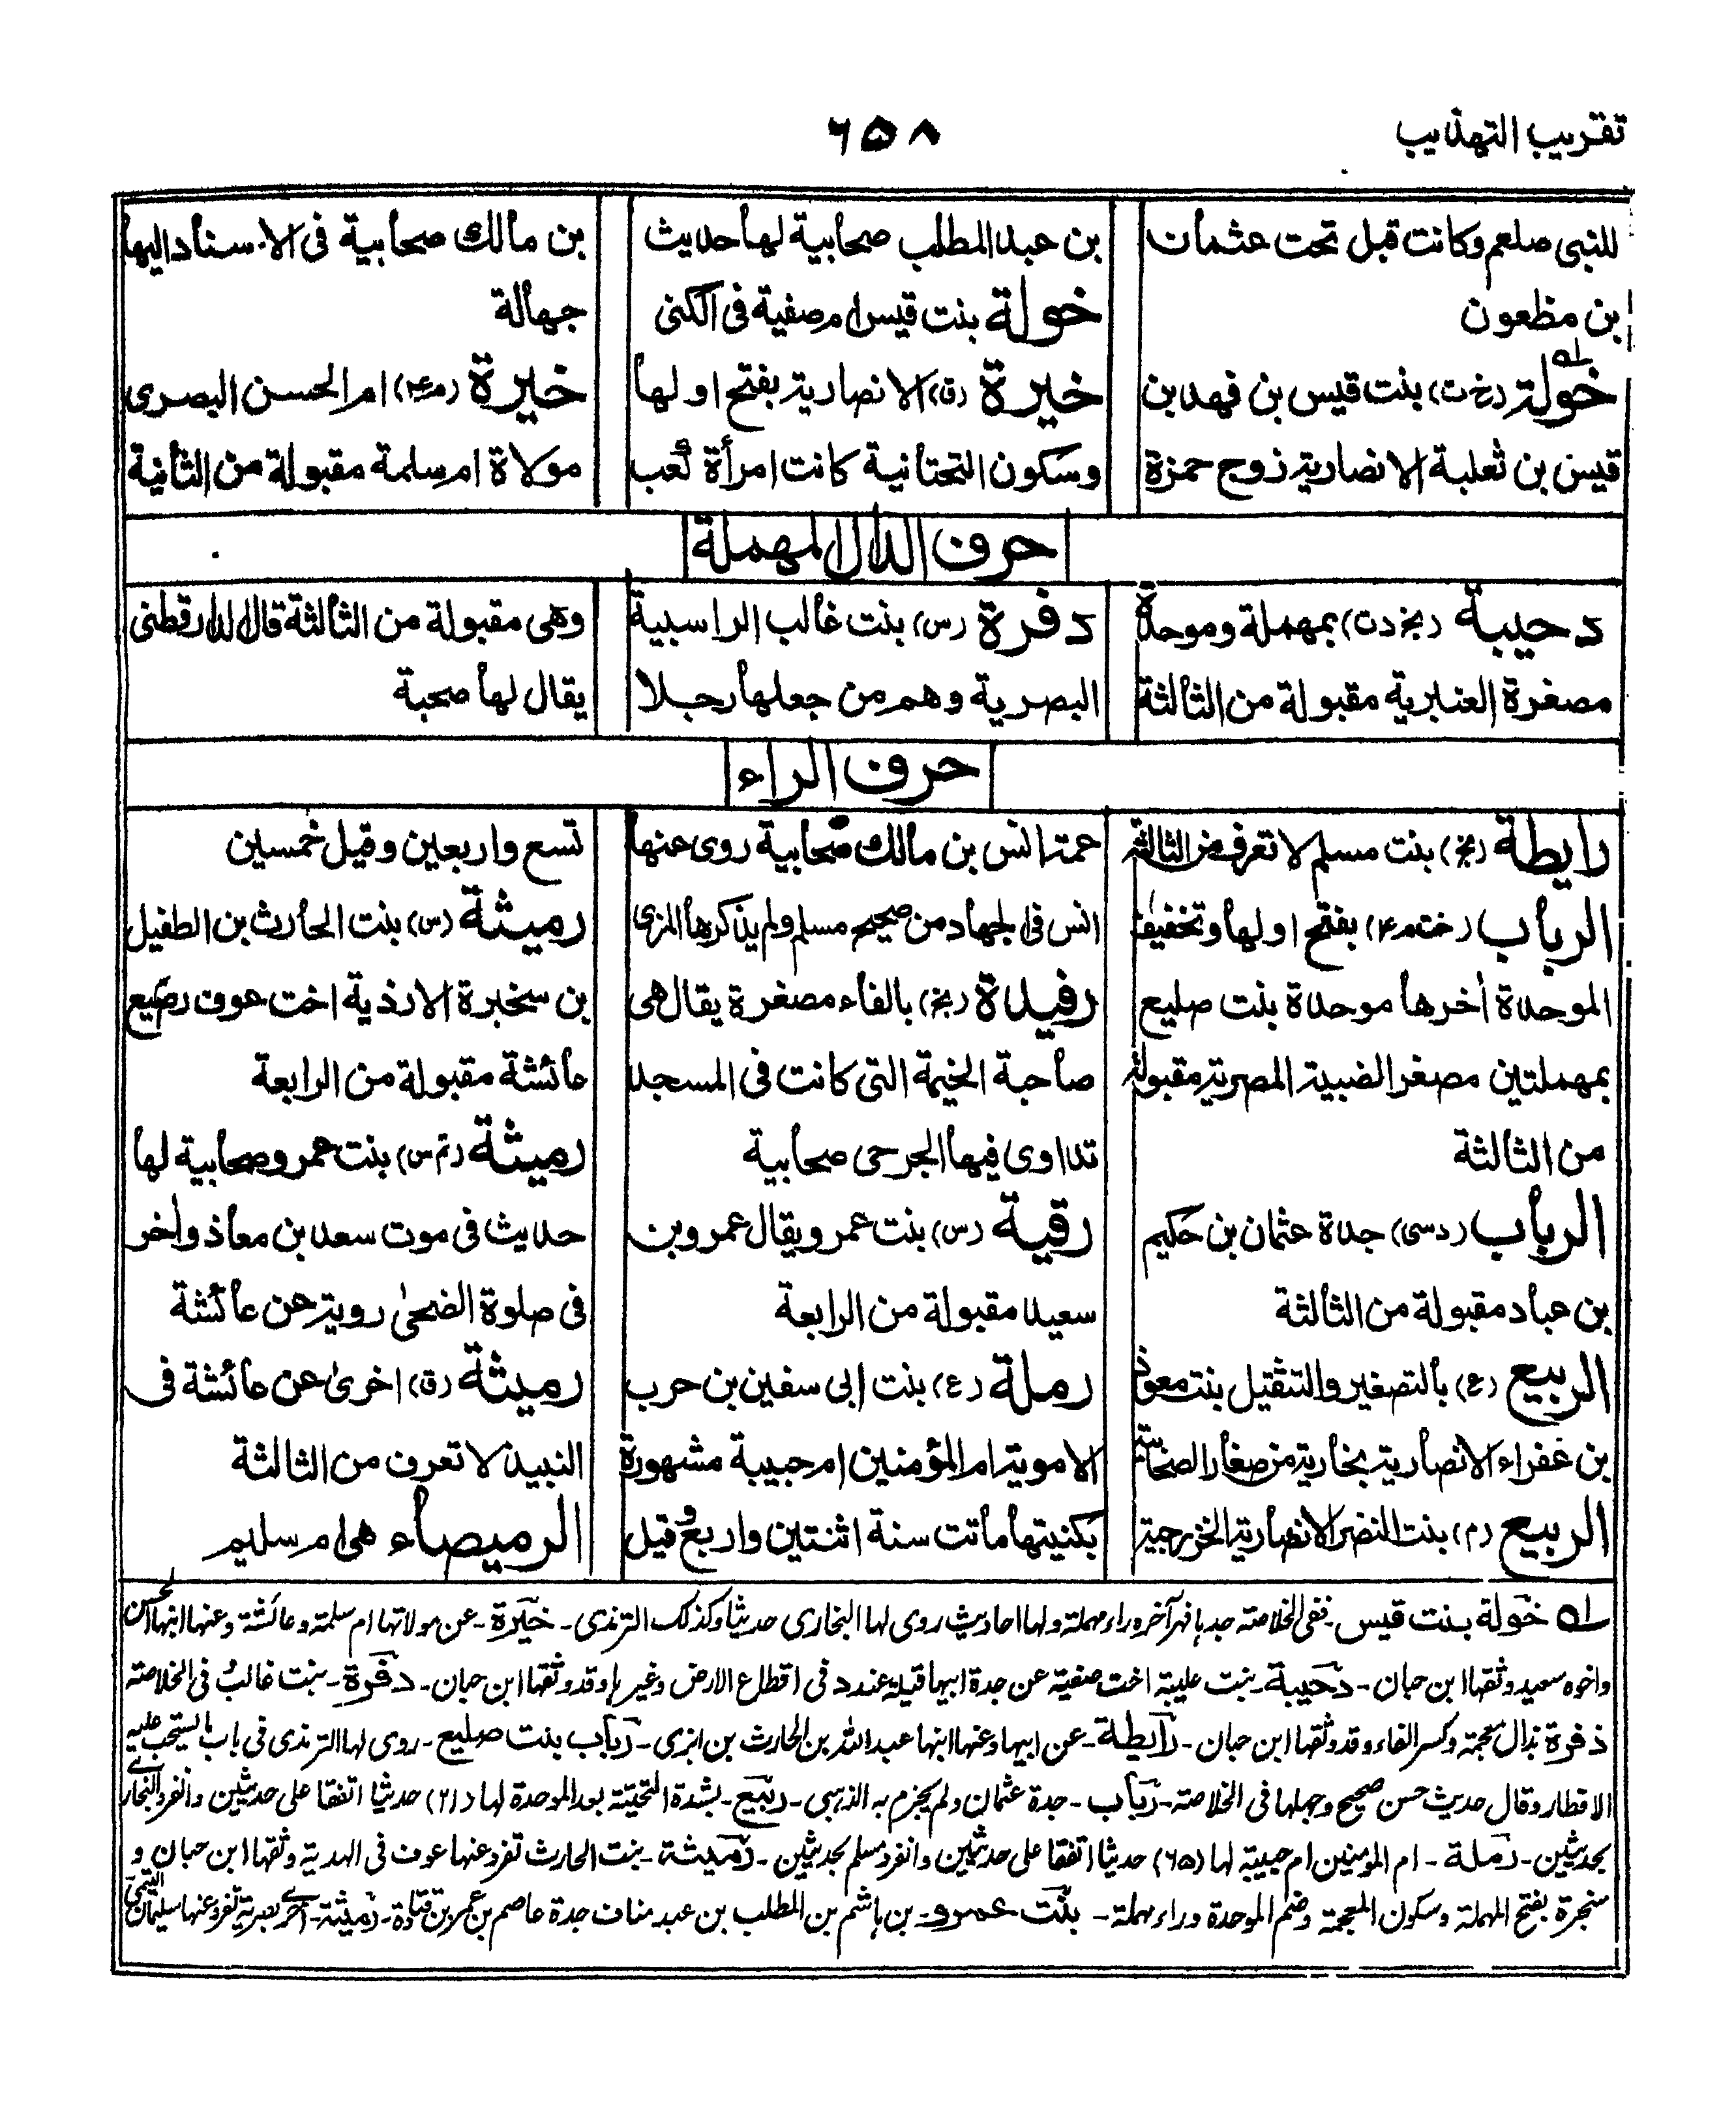 تقريب التهذيب
٦٥٨
للنبى صلعم وكانت قبل تحت عثمان
بن مظعون
خولة (خ ت) بنت قيس بن فهد بن
قيس بن ثعلبة الانصارية زوج حمزة
بن عبد المطلب صحابية لها حديث
خولة بنت قيس ام صفية فى الكنى
خيرة (ق) الانصارية بفتح اولها
وسكون التحتانية كانت امرأة كعب
بن مالك صحابية فى الاسناد اليها
جهالة
خيرة (م ۴) ام الحسن البصرى
مولاة ام سلمة مقبولة من الثانية
حرف الدال المهملة
دحيبة (بخ د ت) بمهملة وموحدة
مصغرة العنبرية مقبولة من الثالثة
دفرة (س) بنت غالب الراسبية
البصرية وهم من جعلها رجلا
وهى مقبولة من الثالثة قال الدارقطنى
يقال لها صحبة
حرف الراء
رايطة (بخ) بنت مسلم لا تعرف من الثالثة
الرباب (خت ۴) بفتح اولها وتخفيف
الموحدة اخرها موحدة بنت صليع
بمهملتين مصغر الضبية المصرية مقبولة
من الثالثة
الرباب (د سى) جدة عثمان بن حكيم
بن عباد مقبولة من الثالثة
الربيع (ع) بالتصغير والتثقيل بنت معوذ
بن عفراء الانصارية نجارية من صغار الصحابة
الربيع (م) بنت النضر الانصارية الخزرجية
عمة انس بن مالك صحابية روى عنها
انس فى الجهاد من صحيح مسلم ولم يذكرها المزى
رفيدة (بخ) بالفاء مصغرة يقال هى
صاحبة الخيمة التى كانت فى المسجد
تداوى فيها الجرحى صحابية
رقية (س) بنت عمر ويقال عمرو بن
سعيد مقبولة من الرابعة
رملة (ع) بنت ابى سفين بن حرب
الاموية ام المؤمنين ام حبيبة مشهورة
بكنيتها ماتت سنة اثنتين واربع وقيل
تسع واربعين وقيل خمسين
رميثة (س) بنت الحارث بن الطفيل
بن سخبرة الازدية اخت عوف رضيع
عائشة مقبولة من الرابعة
رميثة (تم س) بنت عمرو صحابية لها
حديث فى موت سعد بن معاذ وآخر
فى صلوة الضحىٰ روية عن عائشة
رميثة (ق) اخرىٰ عن عائشة فى
النبيذ لا تعرف من الثالثة
الرميصاء هى ام سليم
له خولة بنت قيس۔ ففى الخلاصة جدها فهر آخره راء مهملة ولها احاديث روى لها البخارى حديثا وكذلك الترمذى۔ خيرة۔ عن مولاتها ام سلمة وعائشة وعنها ابنها الحسن
واخوه سعيد وثقها ابن حبان۔ دحيبة۔ بنت عليبة اخت صفية عن جدة ابيها قيلة عند د فى اقطاع الارض وغيرها وقد وثقها ابن حبان۔ دفرة۔ بنت غالب فى الخلاصة
ذفرة بذال معجمة وكسر الفاء وقد وثقها ابن حبان۔ رابطة۔ عن ابيها وعنها ابنها عبد الله بن الحارث بن ابزى۔ رباب بنت صليع۔ روى لها الترمذى فى باب ما يستحب عليه
الافطار وقال حديث حسن صحيح وجهلها فى الخلاصة۔ رباب۔ جدة عثمان ولم يجزم به الذهبى۔ ربيع۔ بشدة التحتية بعد الموحدة لها (٢١) حديثا اتفقا على حديثين وانفرد البخارى
بحديثين۔ رملة۔ ام المومنين ام حبيبة لها (٦٥) حديثا اتفقا على حديثين وانفرد مسلم بحديثين۔ رميثة۔ بنت الحارث تفرد عنها عوف فى الهدية وثقها ابن حبان و
سنجرة بفتح المهملة وسكون المعجمة وضم الموحدة وراء مهملة۔ بنت عمرو۔ بن هاشم بن المطلب بن عبد مناف جدة عاصم بن عمر بن قتادة۔ رميثة۔ اخرى بصرية تفرد عنها سليمان التيمى